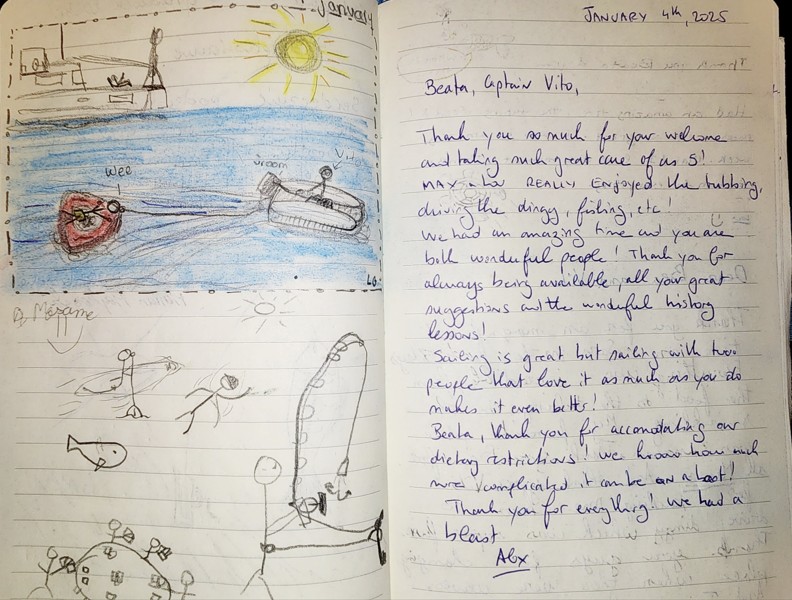 January
Wee
vroom
Vito
LG
JANUARY 4th, 2025
Beata, Captain Vito,
Thank you so much for your welcome
and taking such great care of us 5!
MAX & Lou REALLY ENJOYED the tubbing,
driving the dingy, fishing, etc!
We had an amazing time and you are
both wonderful people! Thank you for
always being available, all your great
suggestions and the wonderful history
lessons!
Sailing is great but sailing with two
people that love it as much as you do
makes it even better!
Beata, thank you for accomodating our
dietary restrictions! We know how much
more complicated it can be on a boat!
Thank you for everything! We had a
blast
Alex